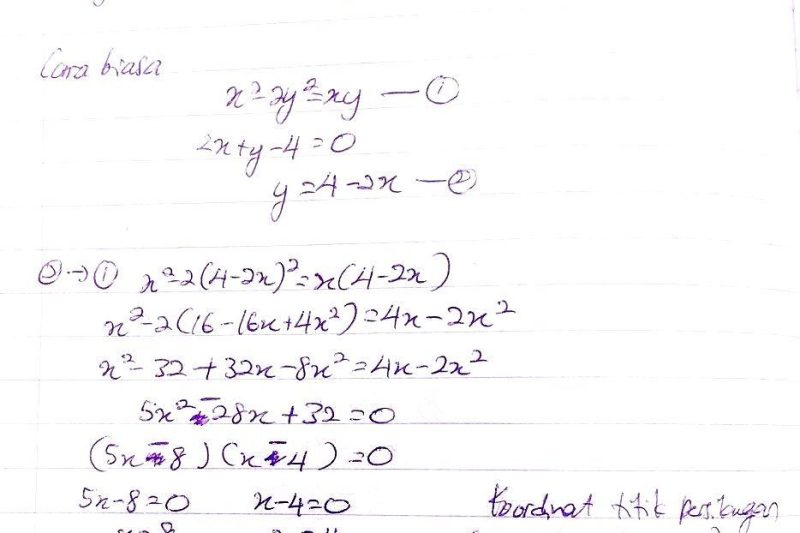 Cara biasa
x²-2y²=xy — ①
2x+y-4=0
y=4-2x — ②
②→① x²-2(4-2x)²=x(4-2x)
x²-2(16-16x+4x²)=4x-2x²
x²-32+32x-8x²=4x-2x²
5x²-28x+32=0
(5x-8)(x-4)=0
5x-8=0 x-4=0 Koordinat titik persilangan